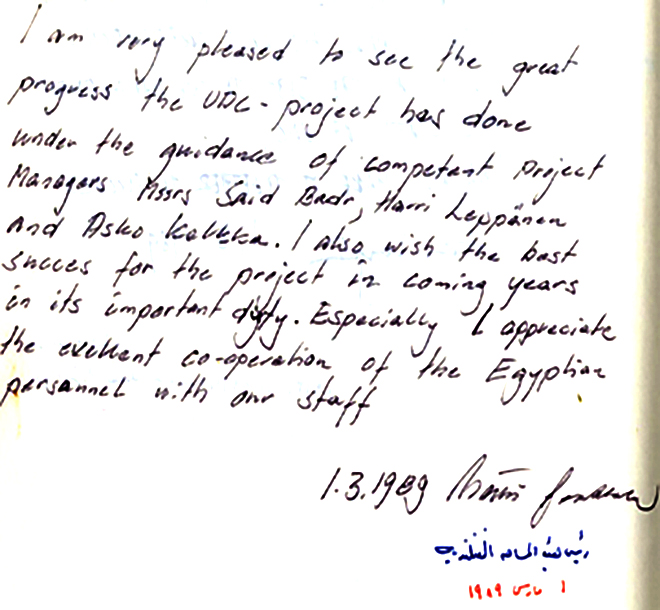 I am very pleased to see the great
progress the UDC-project has done
under the guidance of competent Project
Managers Mssrs Said Badr, Harri Leppänen
and Asko . I also wish the best
succes for the project in coming years
in its important duty. Especially I appreciate
the exellent co-operation of the Egyptian
personnel with our staff
1.3.1989
رئيس هيئة المساحه الفنلنديه
١ مارس ١٩٨٩